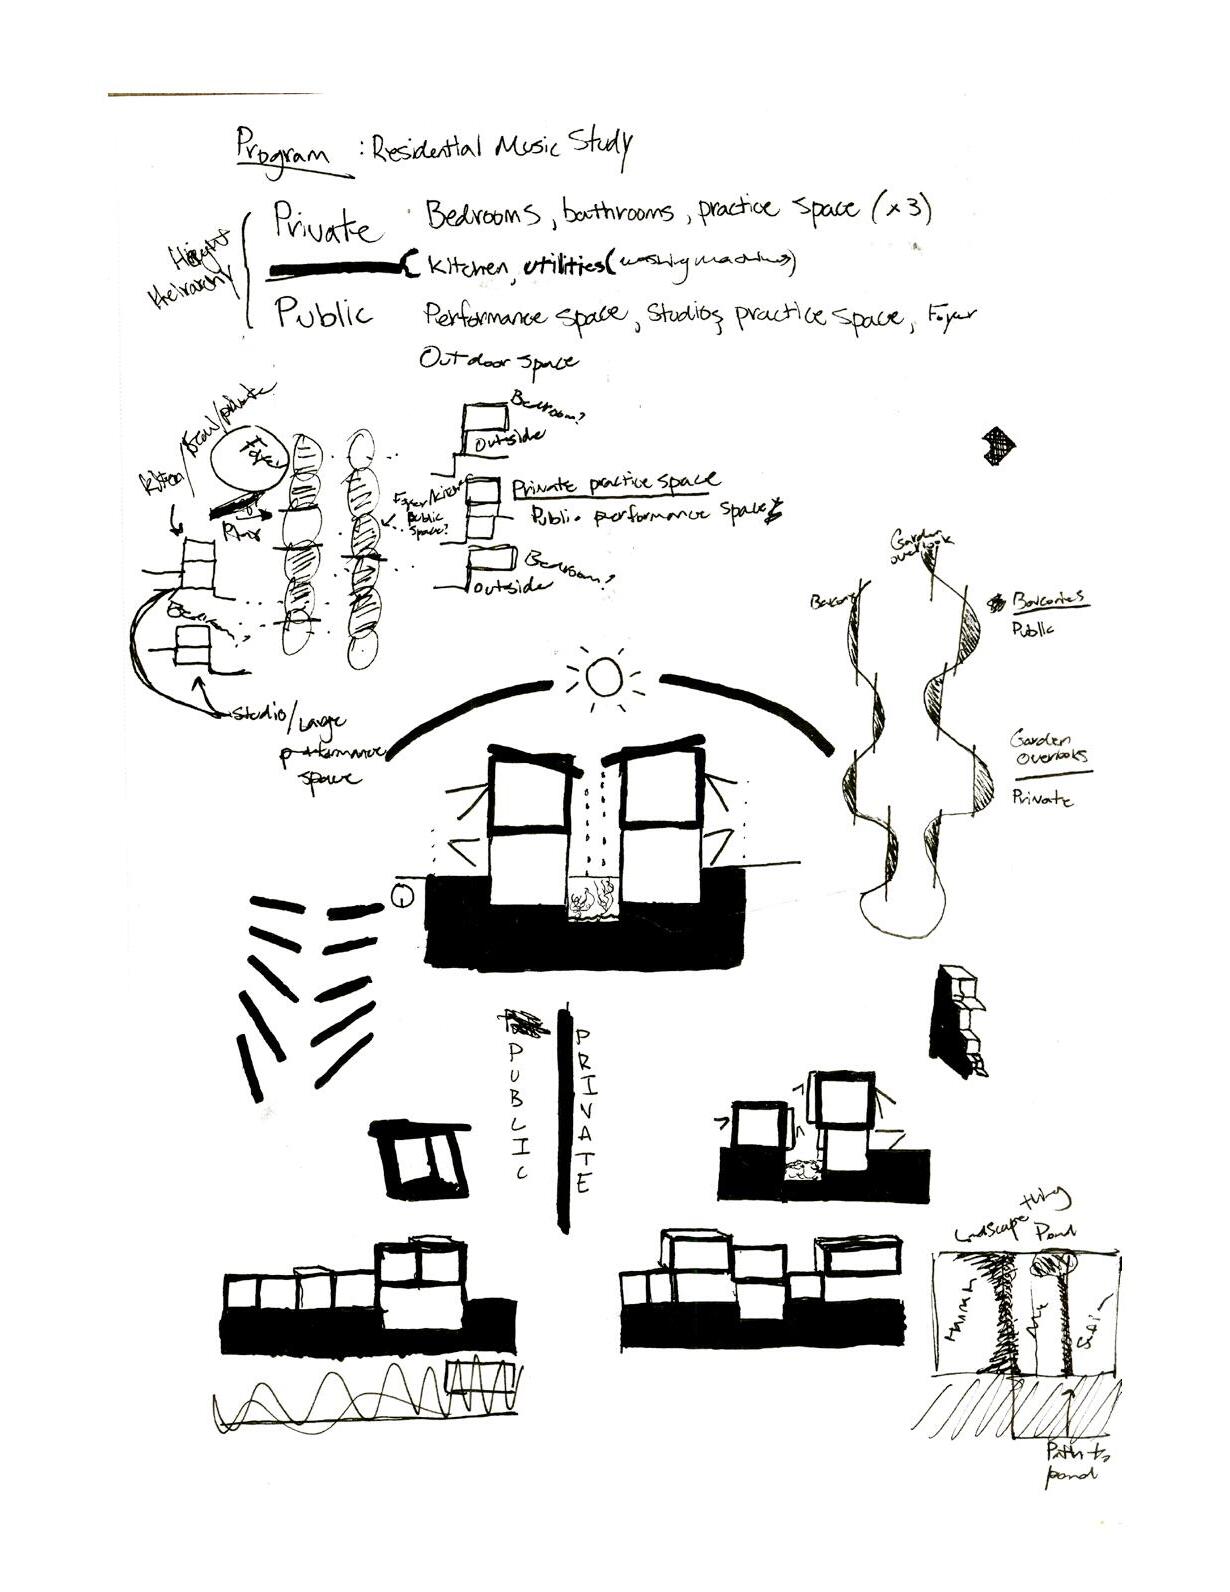 Program : Residential Music Study
Height
Heirarchy
Private Bedrooms, bathrooms, practice space (x3)
Kitchen, utilities (washing machines)
Public Performance space, studios, practice space, Foyer
Outdoor space
Bedroom?
Outside
Kitchen/
/private
Foyer
Foyer/Kitchen
public
space?
Private practice space
Public performance space
Bedroom?
outside
studio/Large
performance
space
Garden
overlook
Balcony
Balconies
Public
Garden
Overlooks
Private
PUBLIC
PRIVATE
Landscape thing
Pond
Path to
pond